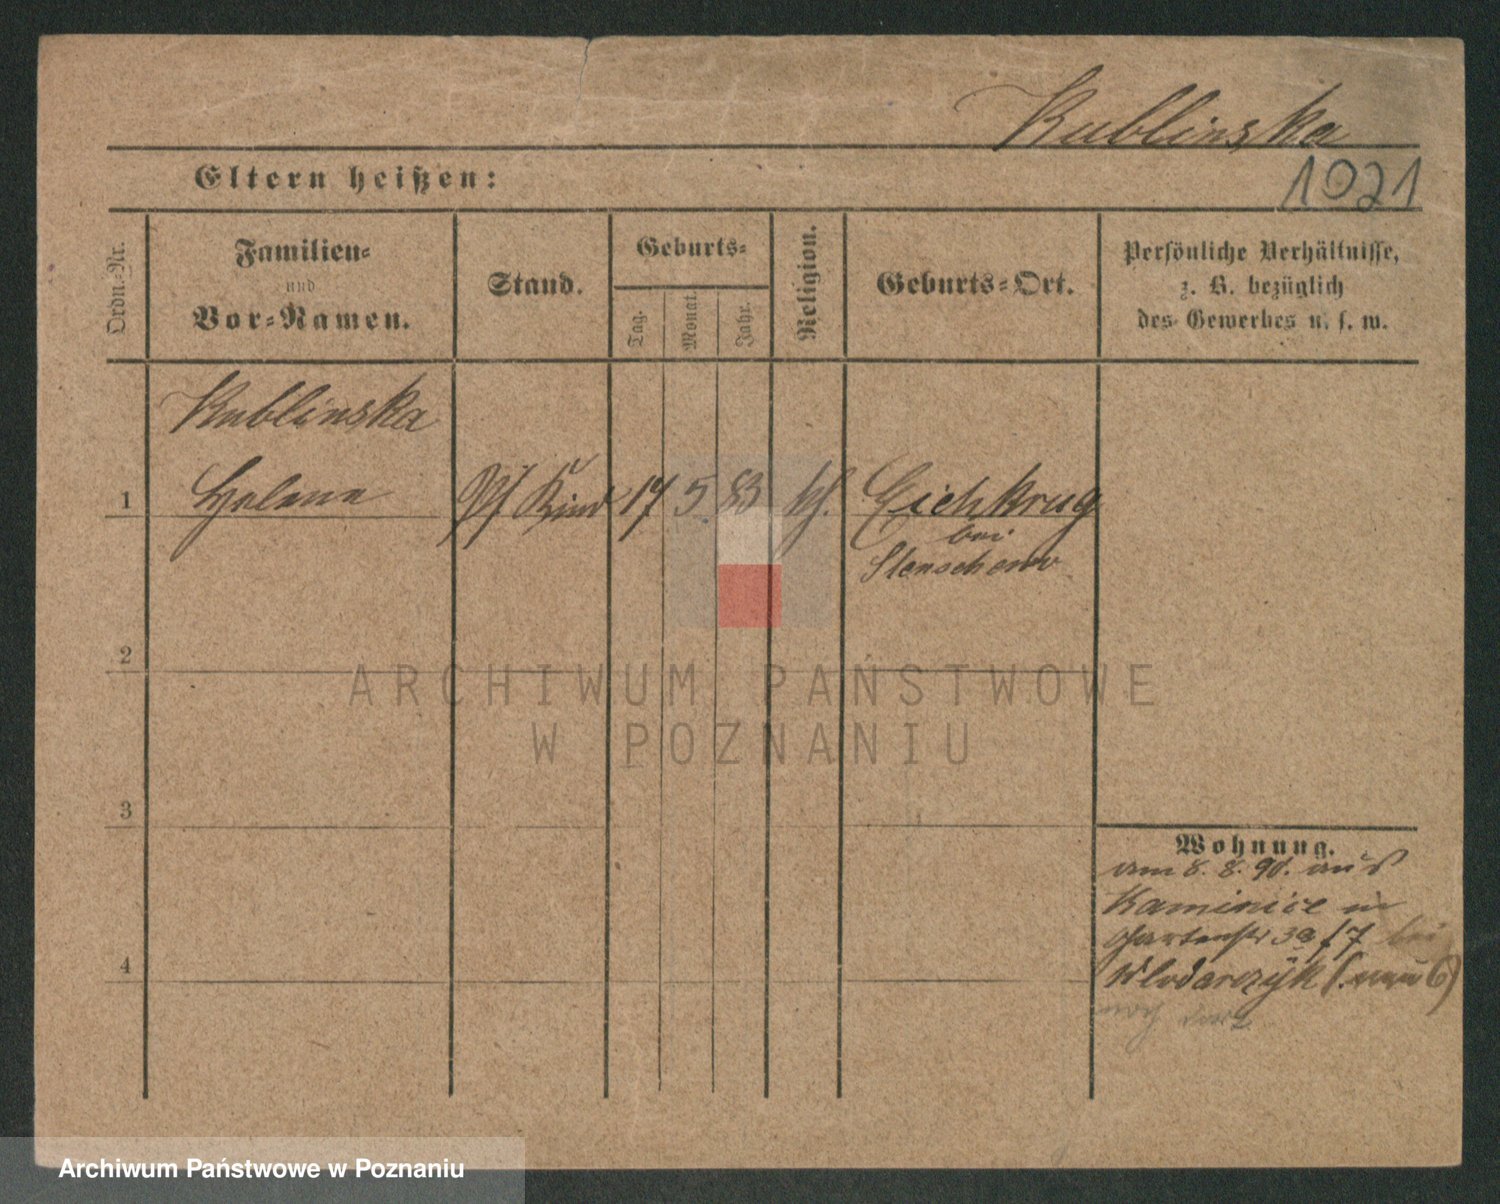 Kublinska
Eltern heißen:
1021
Ordn.-Nr.
Familien-
und
Vor-Namen.
Stand.
Geburts-
Tag.
Monat.
Jahr.
Religion.
Geburts-Ort.
Persönliche Verhältnisse,
z. B. bezüglich
des Gewerbes u. s. w.
Kublinska
1 Helena Pf Kind 17 5 83 kf. Eichkrug
bei
Stenschewo
2
3
4
Wohnung.
am 8. 8. 90. aus
Kaminice in
Gartenstr 3a f 7 bei
Wlodarczyk
noch
ARCHIWUM PAŃSTWOWE
W POZNANIU
Archiwum Państwowe w Poznaniu